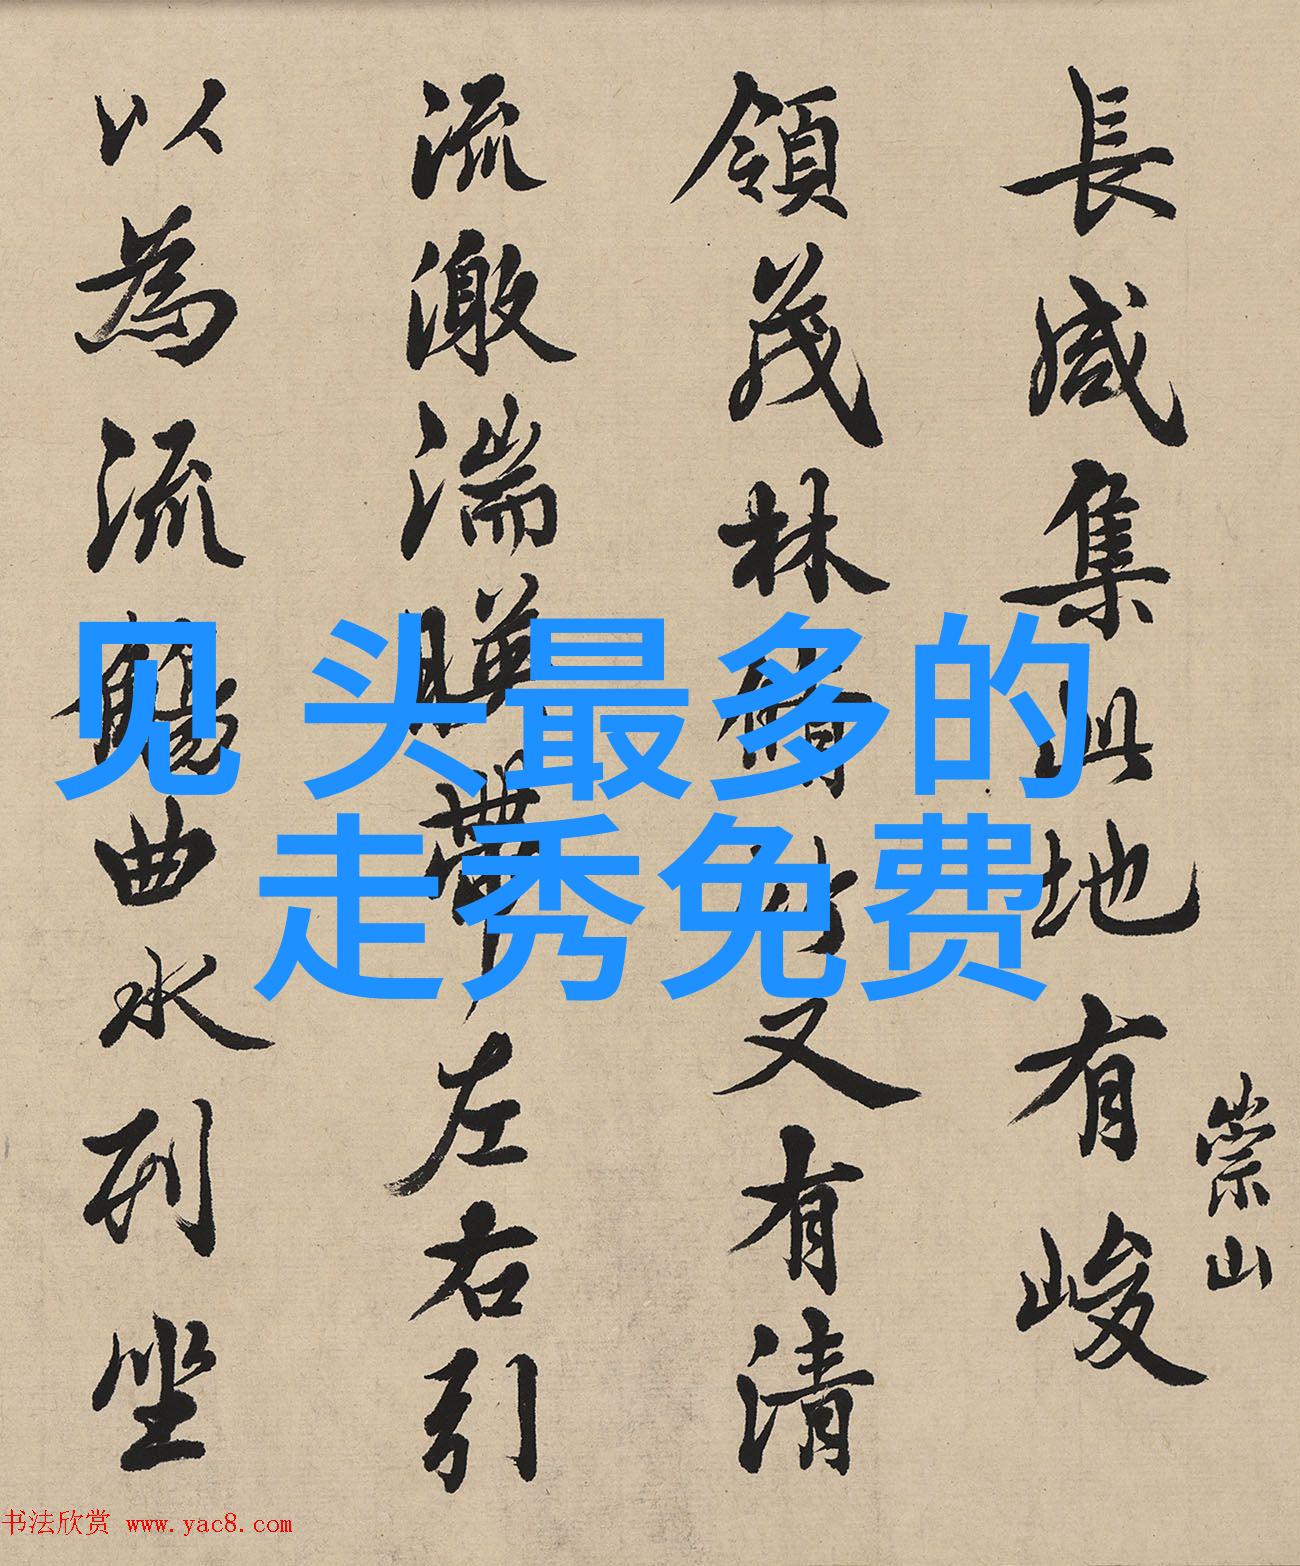 長咸集此地有峻
崇山
領茂林脩竹又有清
流激湍暎帶左右引
以為流觴曲水列坐
见 头最多的
走秀免费
书法欣赏 www.yac8.com